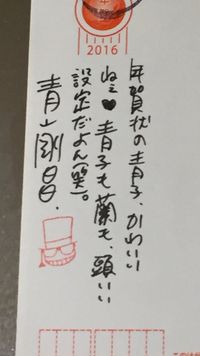 2016
年賀状の青子、かわいい
ねぇ♥青子も蘭も、頭いい
設定だよん(笑)。
青山剛昌.